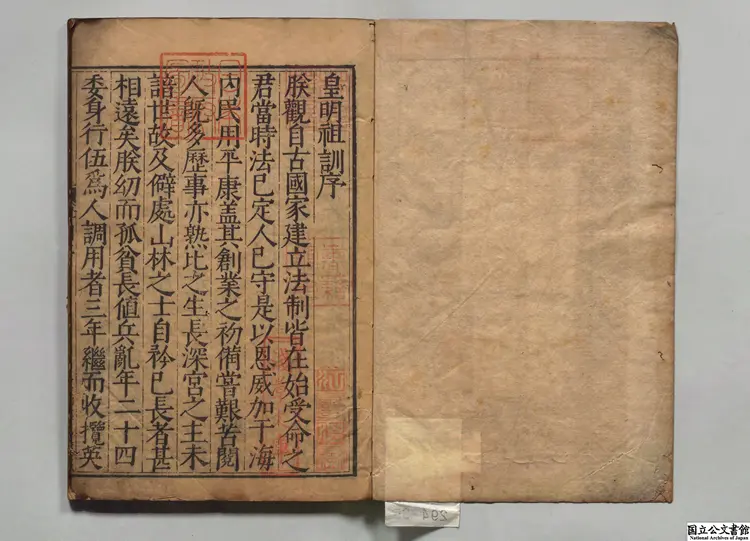 皇明祖訓序
朕觀自古國家建立法制皆在始受命之
君當時法已定人已守是以恩威加于海
內民用平康盖其創業之初備嘗艱苦閱
人既多歷事亦熟比之生長深宮之主未
諳世故及僻處山林之士自矜己長者甚
相遠矣朕幼而孤貧長值兵亂年二十四
委身行伍爲人調用者三年繼而收攬英
294
国立公文書館
National Archives of Japan